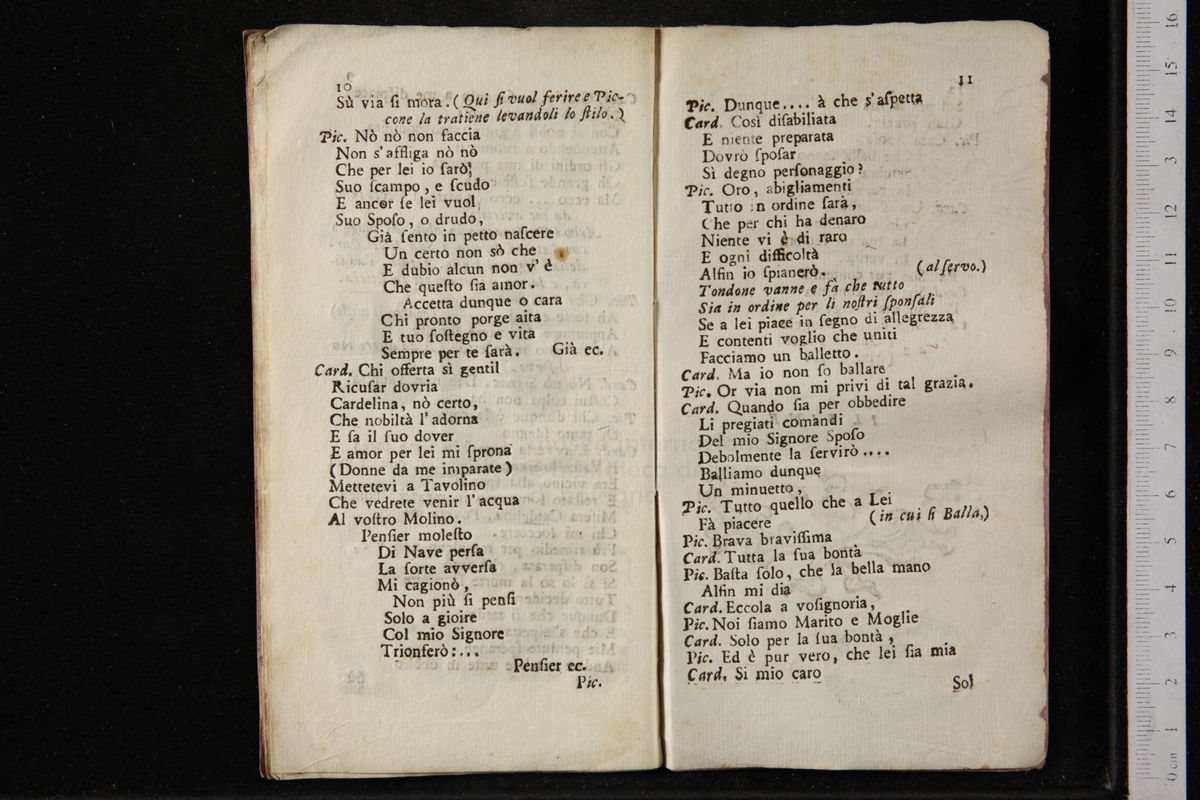 10
Sù via ſi mora. (Qui ſi vuol ferire e Pic-
cone la tratiene levandoli lo ſtilo.)
Pic. Nò nò non faccia
Non s'affliga nò nò
Che per lei io farò;
Suo ſcampo, e ſcudo
E ancor ſe lei vuol
Suo Spoſo, o drudo,
Già ſento in petto naſcere
Un certo non sò che
E dubio alcun non v'è
Che queſto ſia amor.
Accetta dunque o cara
Chi pronto porge aita
E tuo ſoſtegno e vita
Sempre per te ſarà. Già ec.
Card. Chi offerta sì gentil
Ricuſar dovria
Cardelina, nò certo,
Che nobiltà l'adorna
E ſa il ſuo dover
E amor per lei mi ſprona
(Donne da me imparate)
Mettetevi a Tavolino
Che vedrete venir l'acqua
Al voſtro Molino.
Penſier moleſto
Di Nave perſa
La ſorte avverſa
Mi cagionò,
Non più ſi penſi
Solo a gioire
Col mio Signore
Trionferò:...
Penſier ec.
Pic.
11
Pic. Dunque.... à che s'aſpetta
Card. Così diſabiliata
E niente preparata
Dovrò ſpoſar
Sì degno perſonaggio?
Pic. Oro, abigliamenti
Tutto in ordine ſarà,
Che per chi ha denaro
Niente vi è di raro
E ogni difficoltà
Alfin io ſpianerò. (al ſervo.)
Tondone vanne e fà che tutto
Sia in ordine per li noſtri ſponſali
Se a lei piace in ſegno di allegrezza
E contenti voglio che uniti
Facciamo un balletto.
Card. Ma io non ſo ballare
Pic. Or via non mi privi di tal grazia.
Card. Quando ſia per obbedire
Li pregiati comandi
Del mio Signore Spoſo
Debolmente la ſervirò....
Balliamo dunque
Un minuetto,
Pic. Tutto quello che a Lei
Fà piacere (in cui ſi Balla,)
Pic. Brava braviſſima
Card. Tutta la ſua bontà
Pic. Baſta ſolo, che la bella mano
Alfin mi dia
Card. Eccola a voſignoria,
Pic. Noi ſiamo Marito e Moglie
Card. Solo per la ſua bontà,
Pic. Ed è pur vero, che lei ſia mia
Card. Si mio caro
Sol